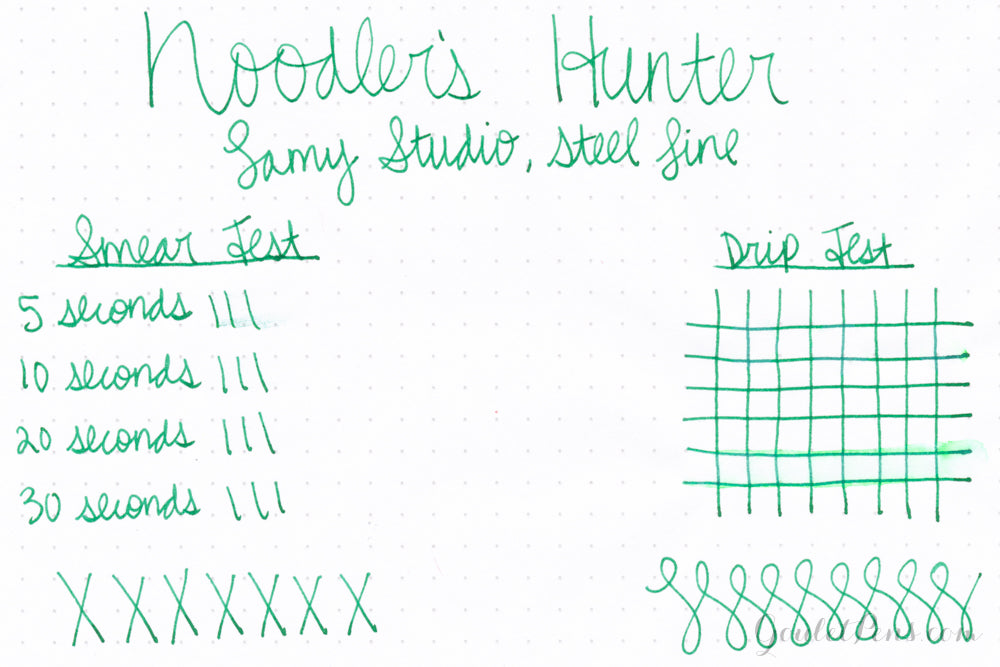 Noodler's Hunter
Lamy Studio, steel fine
Smear Test
Drip Test
5 seconds
10 seconds
20 seconds
30 seconds
GouletPens.com